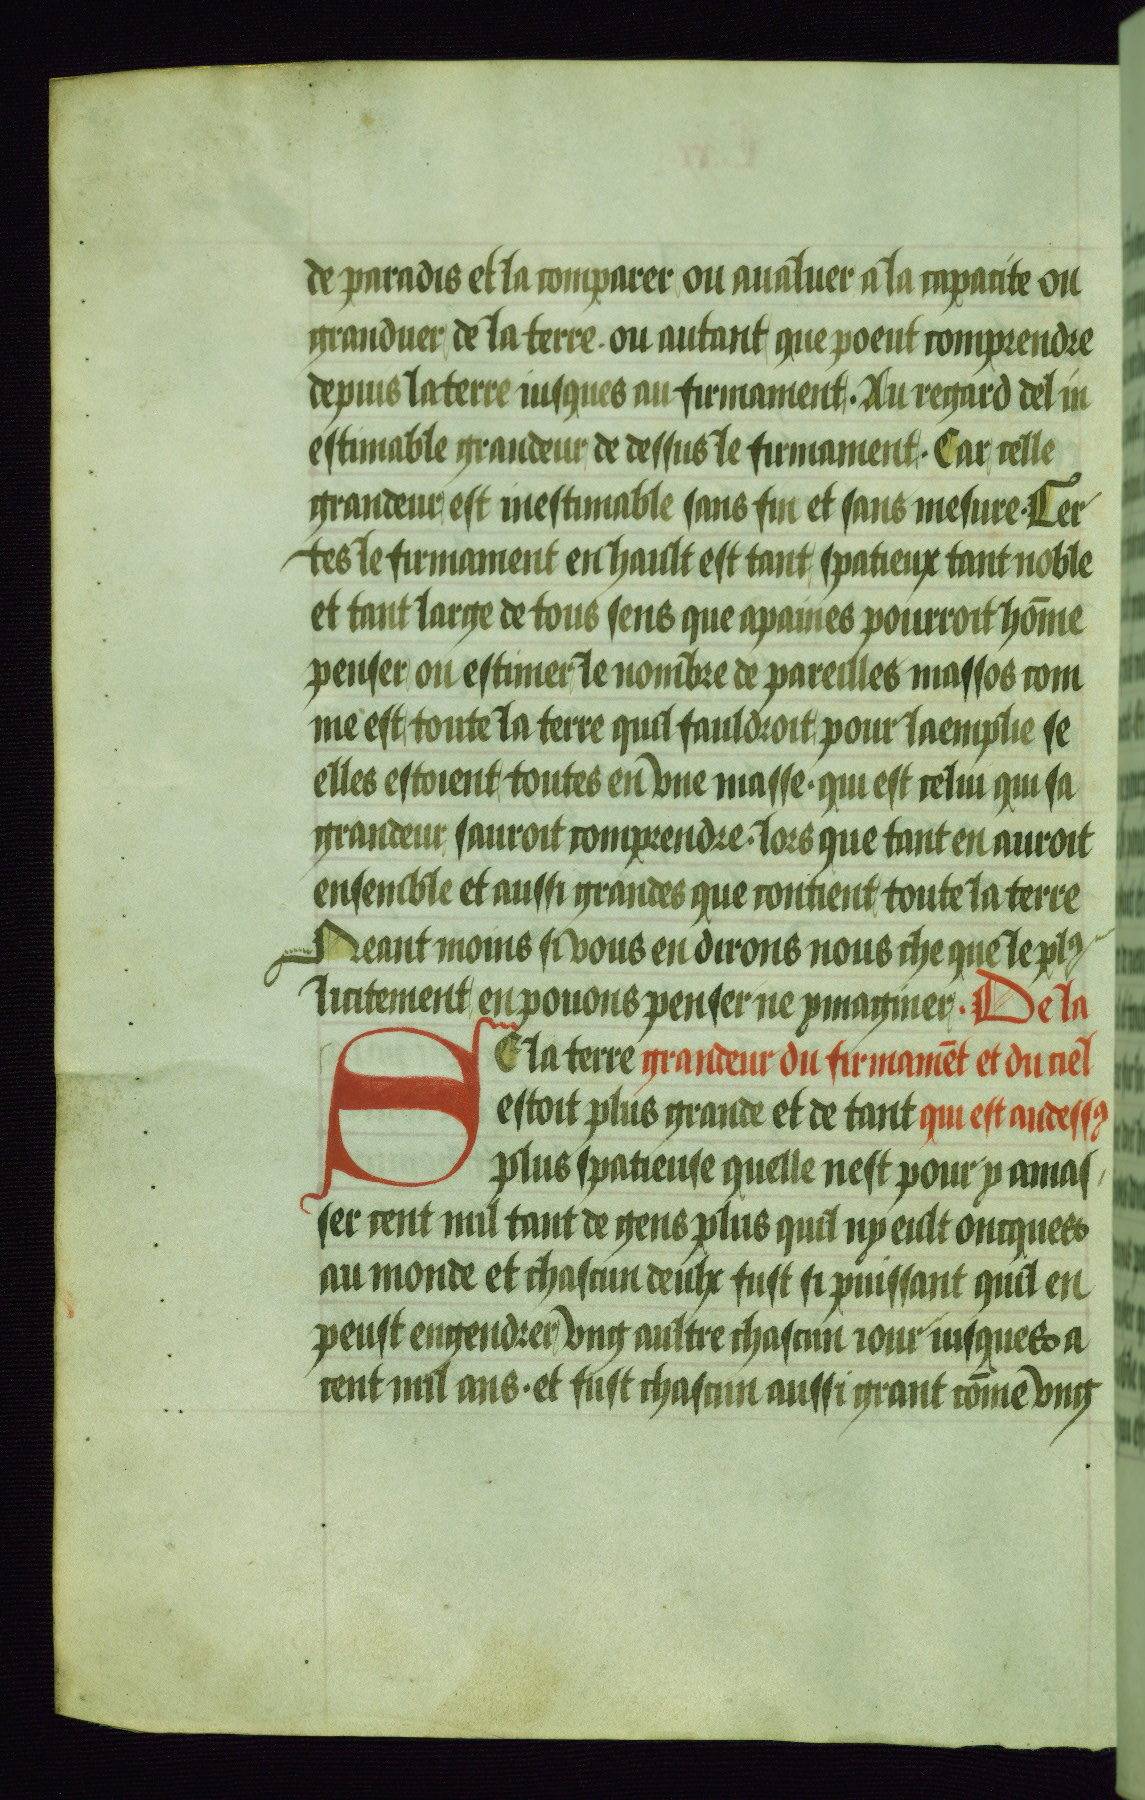 de paradis et la comparer ou aualuer a la capacite ou
granduer de la terre. ou autant que poeut comprendre
depuis la terre iusques au firmament. Au regard del in
estimable grandeur de dessus le firmament. Car celle
grandeur est inestimable sans fin et sans mesure. Cer
tes le firmament en hault est tant spatieux tant noble
et tant large de tous sens que apaines pourroit hōme
penser ou estimer le nombre de pareilles massos com
me est toute la terre quil fauldroit pour laemplie se
elles estoient toutes en vne masse. qui est celui qui sa
grandeur sauroit comprendre. lors que tant en auroit
ensemble et aussi grandes que contient toute la terre
Neant moins si vous en dirons nous che que le plꝰ
licitement en pouons penser ne ymaginer. De la
SE la terre grandeur du firmamēt et du ciel
estoit plus grande et de tant qui est audessꝰ
plus spatieuse quelle nest pour y amas
ser cent mil tant de gens plus quil ny eult oncques
au monde et chascun deulx fust si puissant quil en
peust engendrer vng aultre chascun iour iusques a
cent mil ans. et fust chascun aussi grant cōme vng